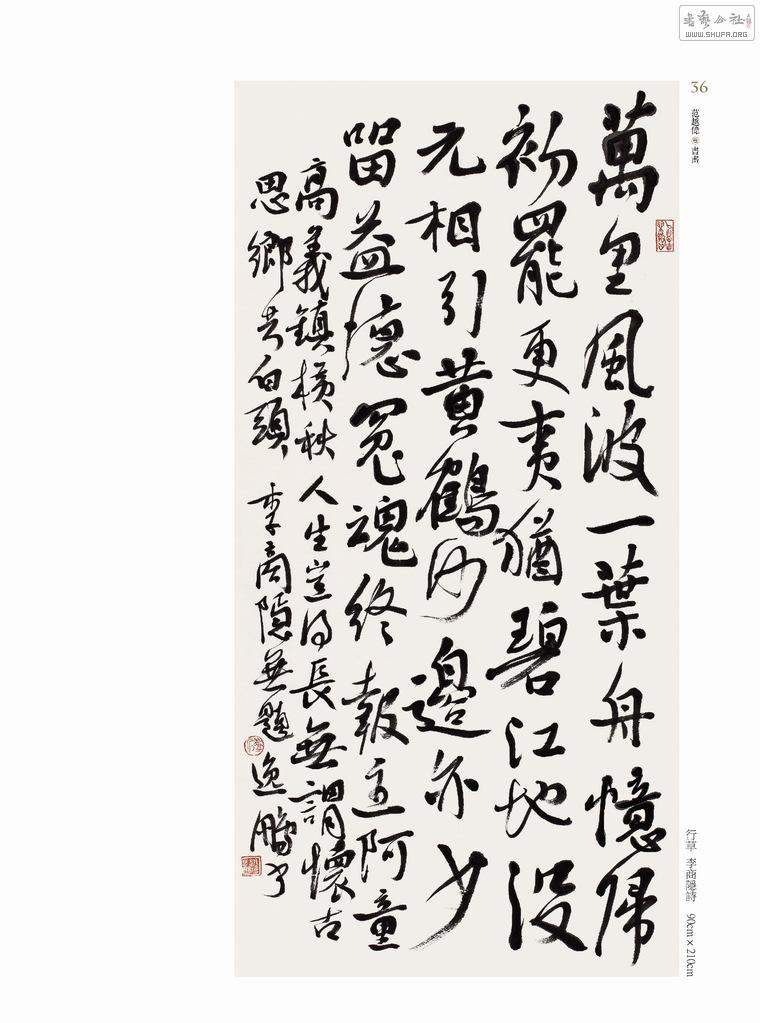 書藝公社
WWW.SHUFA.ORG
36
行草 李商隱詩 90cm×210cm
萬里風波一葉舟憶歸
初罷更夷猶碧江地沒
元相引黃鶴沙邊亦少
留益德冤魂終報主阿童
高義鎮橫秋人生豈得長無謂懷古
思鄉共白頭 李商隱無題 逸鵬書